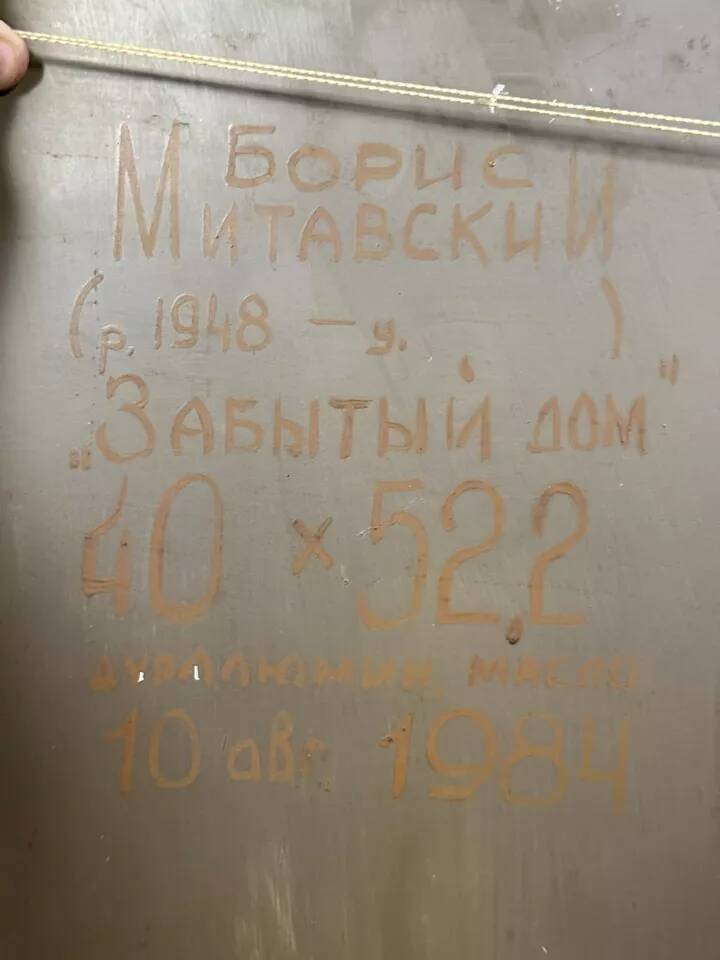 Борис
Митавский
(р. 1948 – у. )
„Забытый дом"
40 x 52,2
дуралюмин, масло
10 авг. 1984